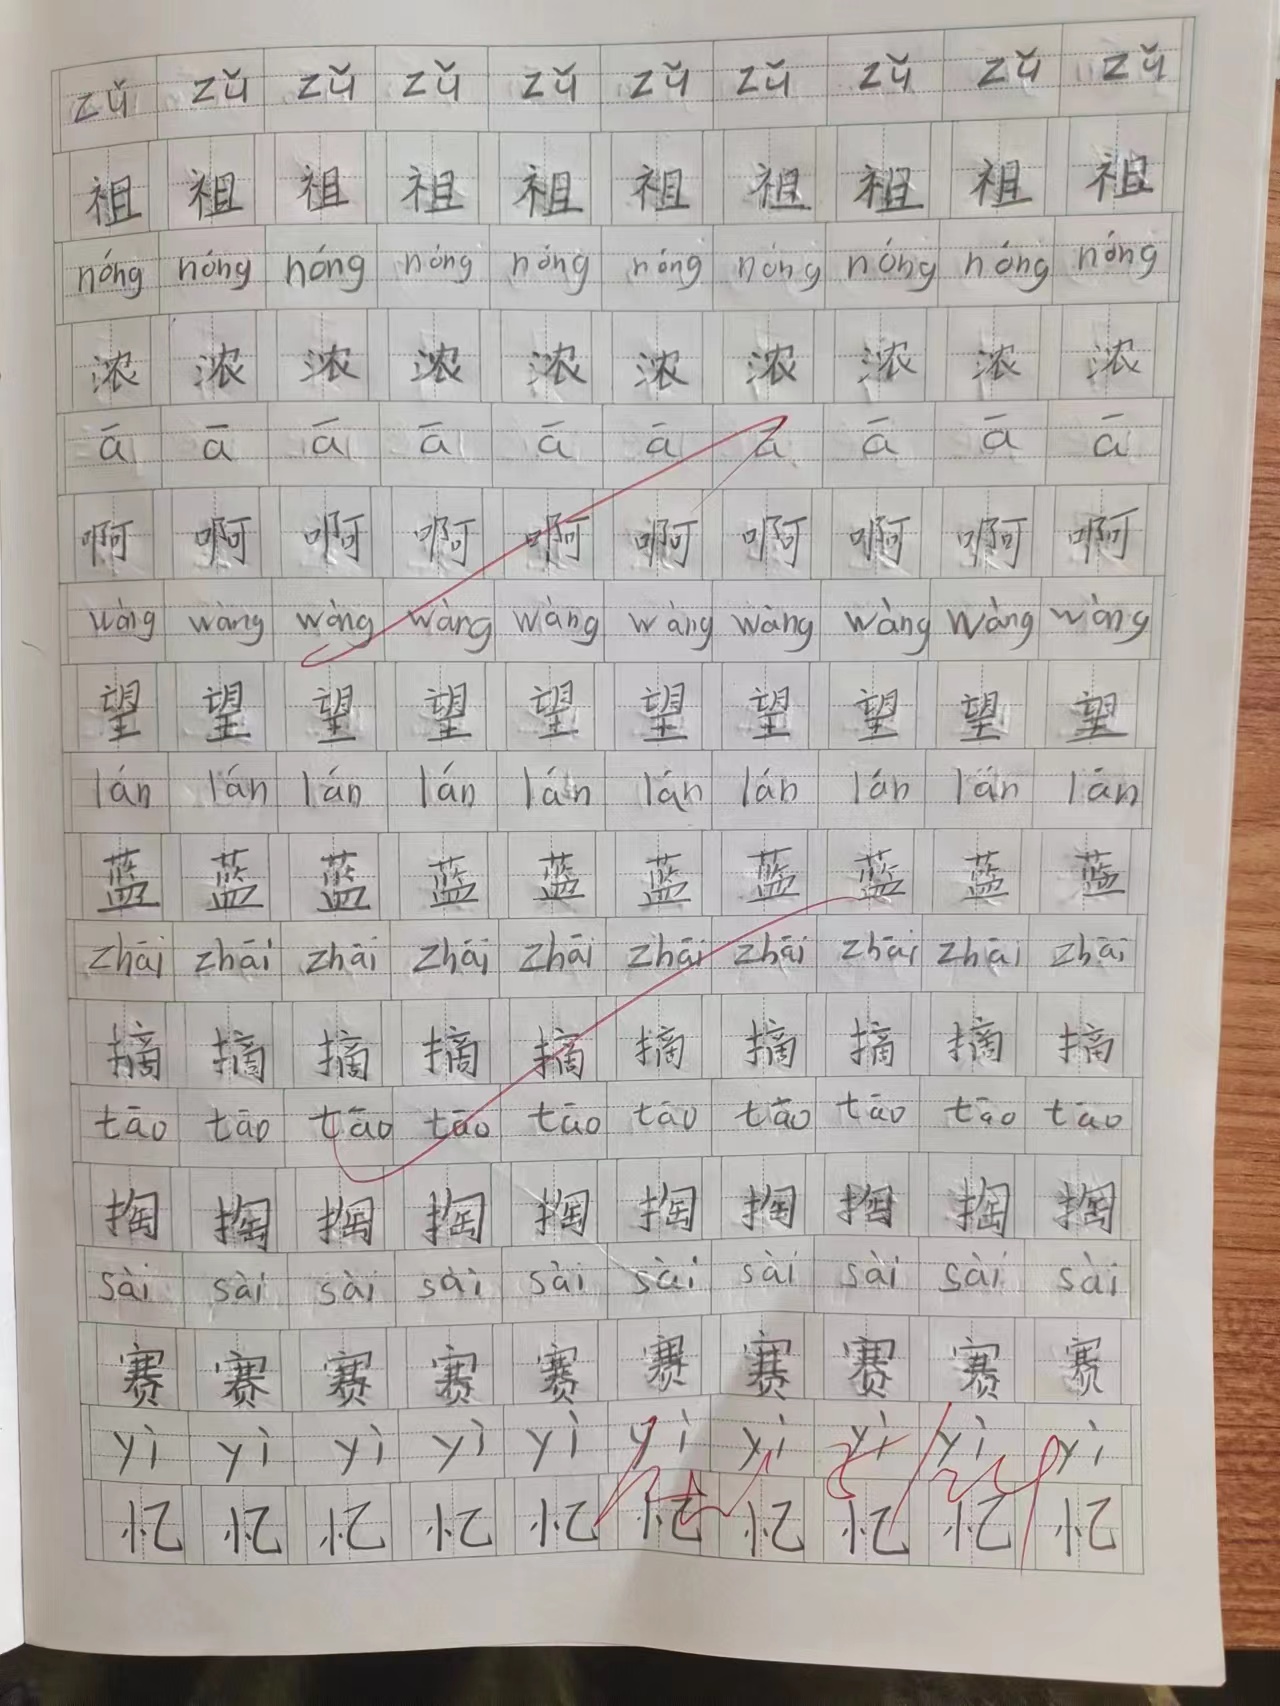 zǔ zǔ zǔ zǔ zǔ zǔ zǔ zǔ zǔ zǔ
祖 祖 祖 祖 祖 祖 祖 祖 祖 祖
nóng nóng nóng nóng nóng nóng nóng nóng nóng nóng
浓 浓 浓 浓 浓 浓 浓 浓 浓 浓
ā ā ā ā ā ā ā ā ā ā
啊 啊 啊 啊 啊 啊 啊 啊 啊 啊
wàng wàng wàng wàng wàng wàng wàng wàng wàng wàng
望 望 望 望 望 望 望 望 望 望
lán lán lán lán lán lán lán lán lán lán
蓝 蓝 蓝 蓝 蓝 蓝 蓝 蓝 蓝 蓝
zhāi zhāi zhāi zhāi zhāi zhāi zhāi zhāi zhāi zhāi
摘 摘 摘 摘 摘 摘 摘 摘 摘 摘
tāo tāo tāo tāo tāo tāo tāo tāo tāo tāo
掏 掏 掏 掏 掏 掏 掏 掏 掏 掏
sài sài sài sài sài sài sài sài sài sài
赛 赛 赛 赛 赛 赛 赛 赛 赛 赛
yì yì yì yì yì yì yì yì yì yì
忆 忆 忆 忆 忆 忆 忆 忆 忆 忆